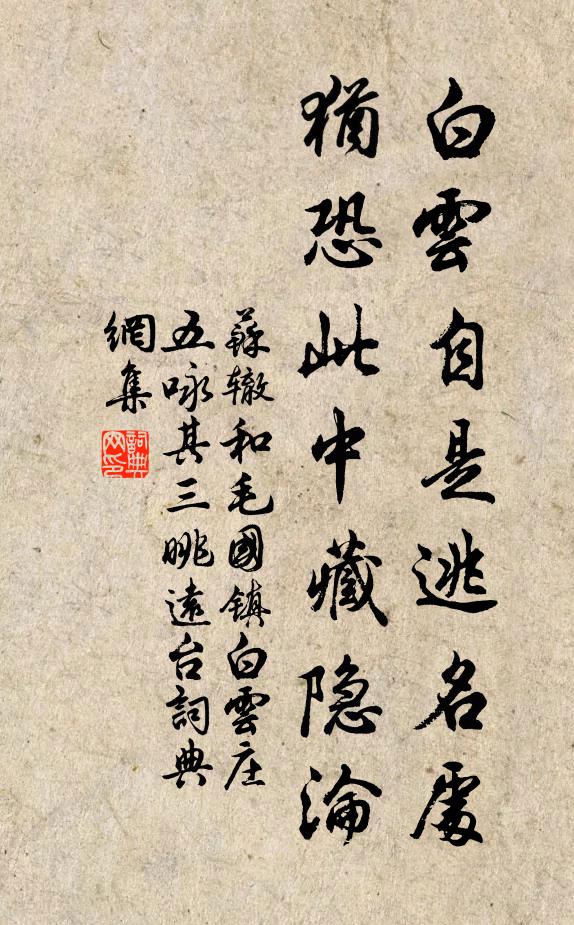 白雲自是逃名處
猶恐此中藏隐淪
蘇辙和毛國镇白雲庄
五咏其三眺遠台詞典
網集
詞典网印